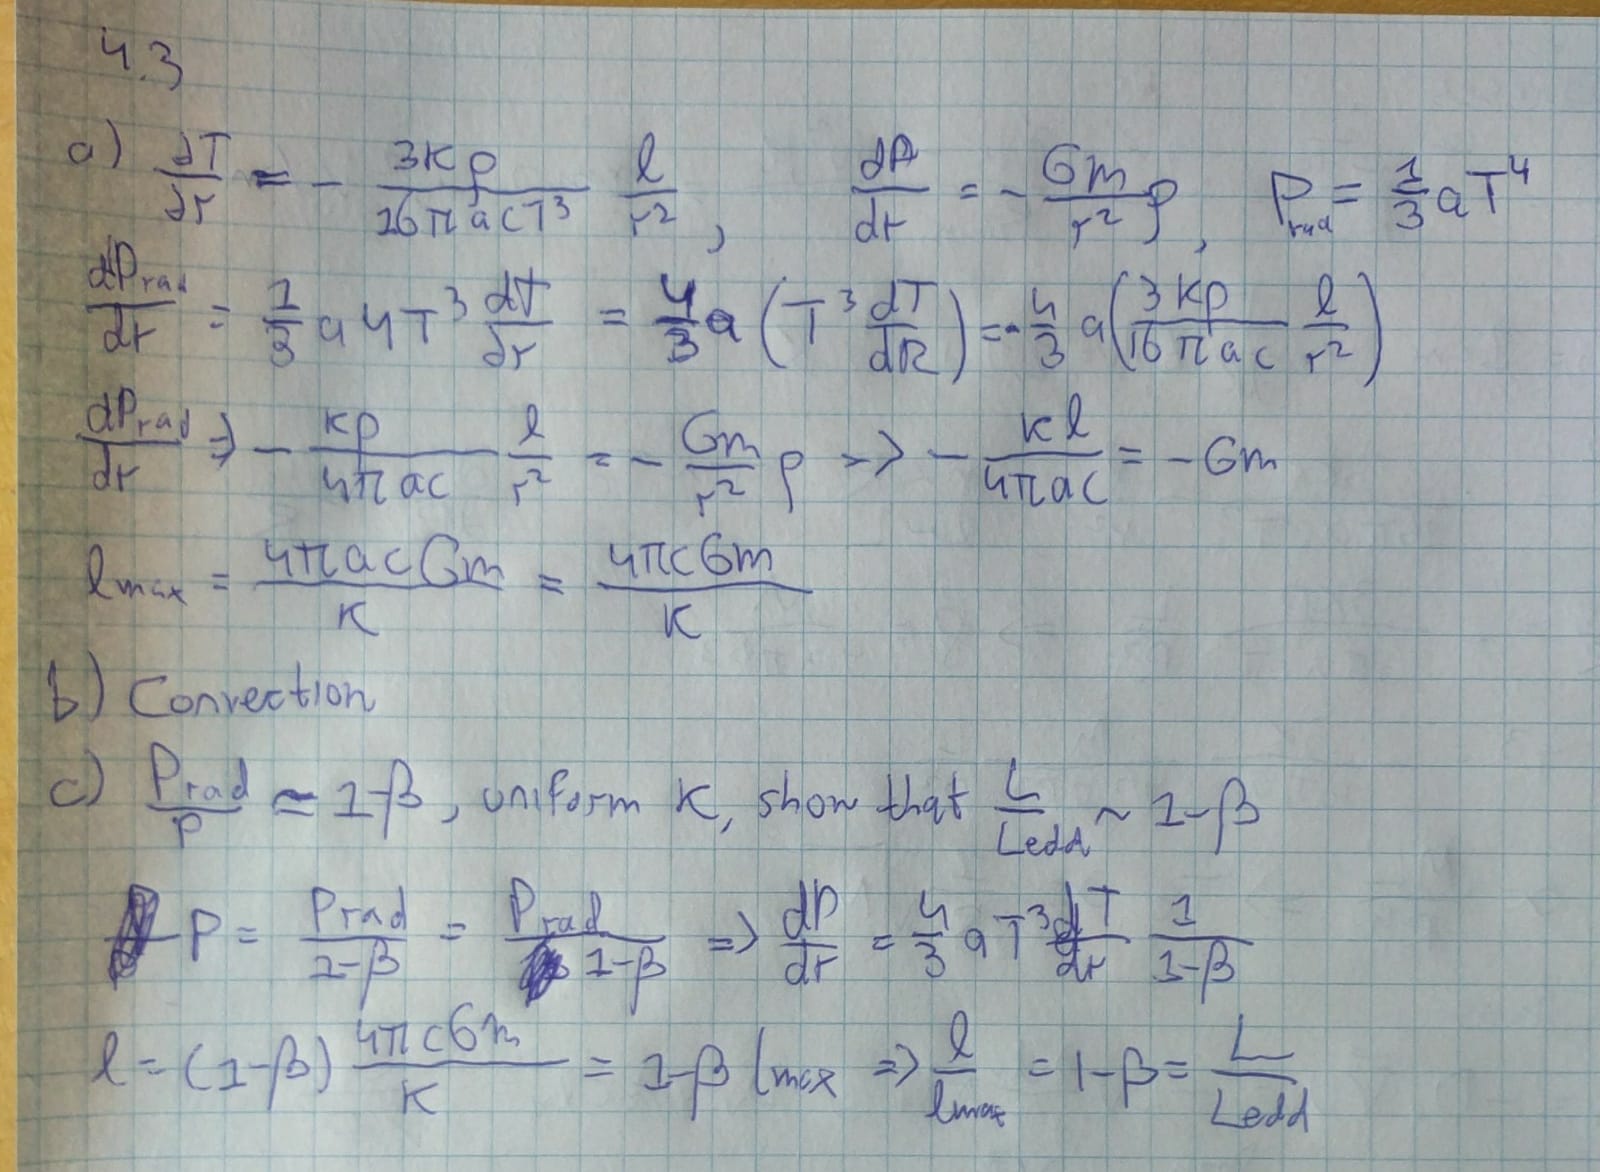 4.3
a) dT/dr = - 3κρ/16πacT³ l/r², dP/dr = - Gm/r² ρ, P_rad = 1/3 aT⁴
dP_rad/dr = 1/3 a 4T³ dT/dr = 4/3 a (T³ dT/dR) = - 4/3 a (3κρ/16πac l/r²)
dP_rad/dr ⇒ - κρ/4πac l/r² = - Gm/r² ρ -> - κl/4πac = -Gm
l_max = 4πacGm/κ = 4πcGm/κ
b) Convection
c) P_rad/P ≃ 1-β, uniform κ, show that L/L_edd ~ 1-β
P = P_rad/1-β = P_rad/1-β => dP/dr = 4/3 aT³ dT/dr 1/1-β
l = (1-β) 4πcGm/κ = 1-β l_max => l/l_max = 1-β = L/L_edd